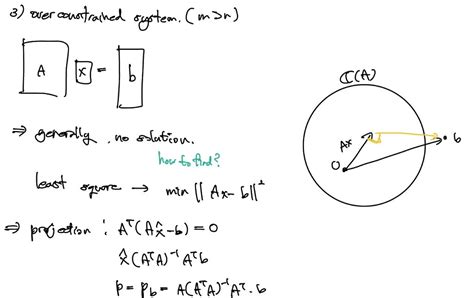 3) overconstrained system. (m>n)
A x = b
⇒ generally, no solution.
how to find?
least square → min || Ax - b ||²
⇒ projection : Aᵀ(Ax̂-b) = 0
x̂(AᵀA)⁻¹Aᵀb
p = p_b = A(AᵀA)⁻¹Aᵀ·b
C(A)
Ax
b
O